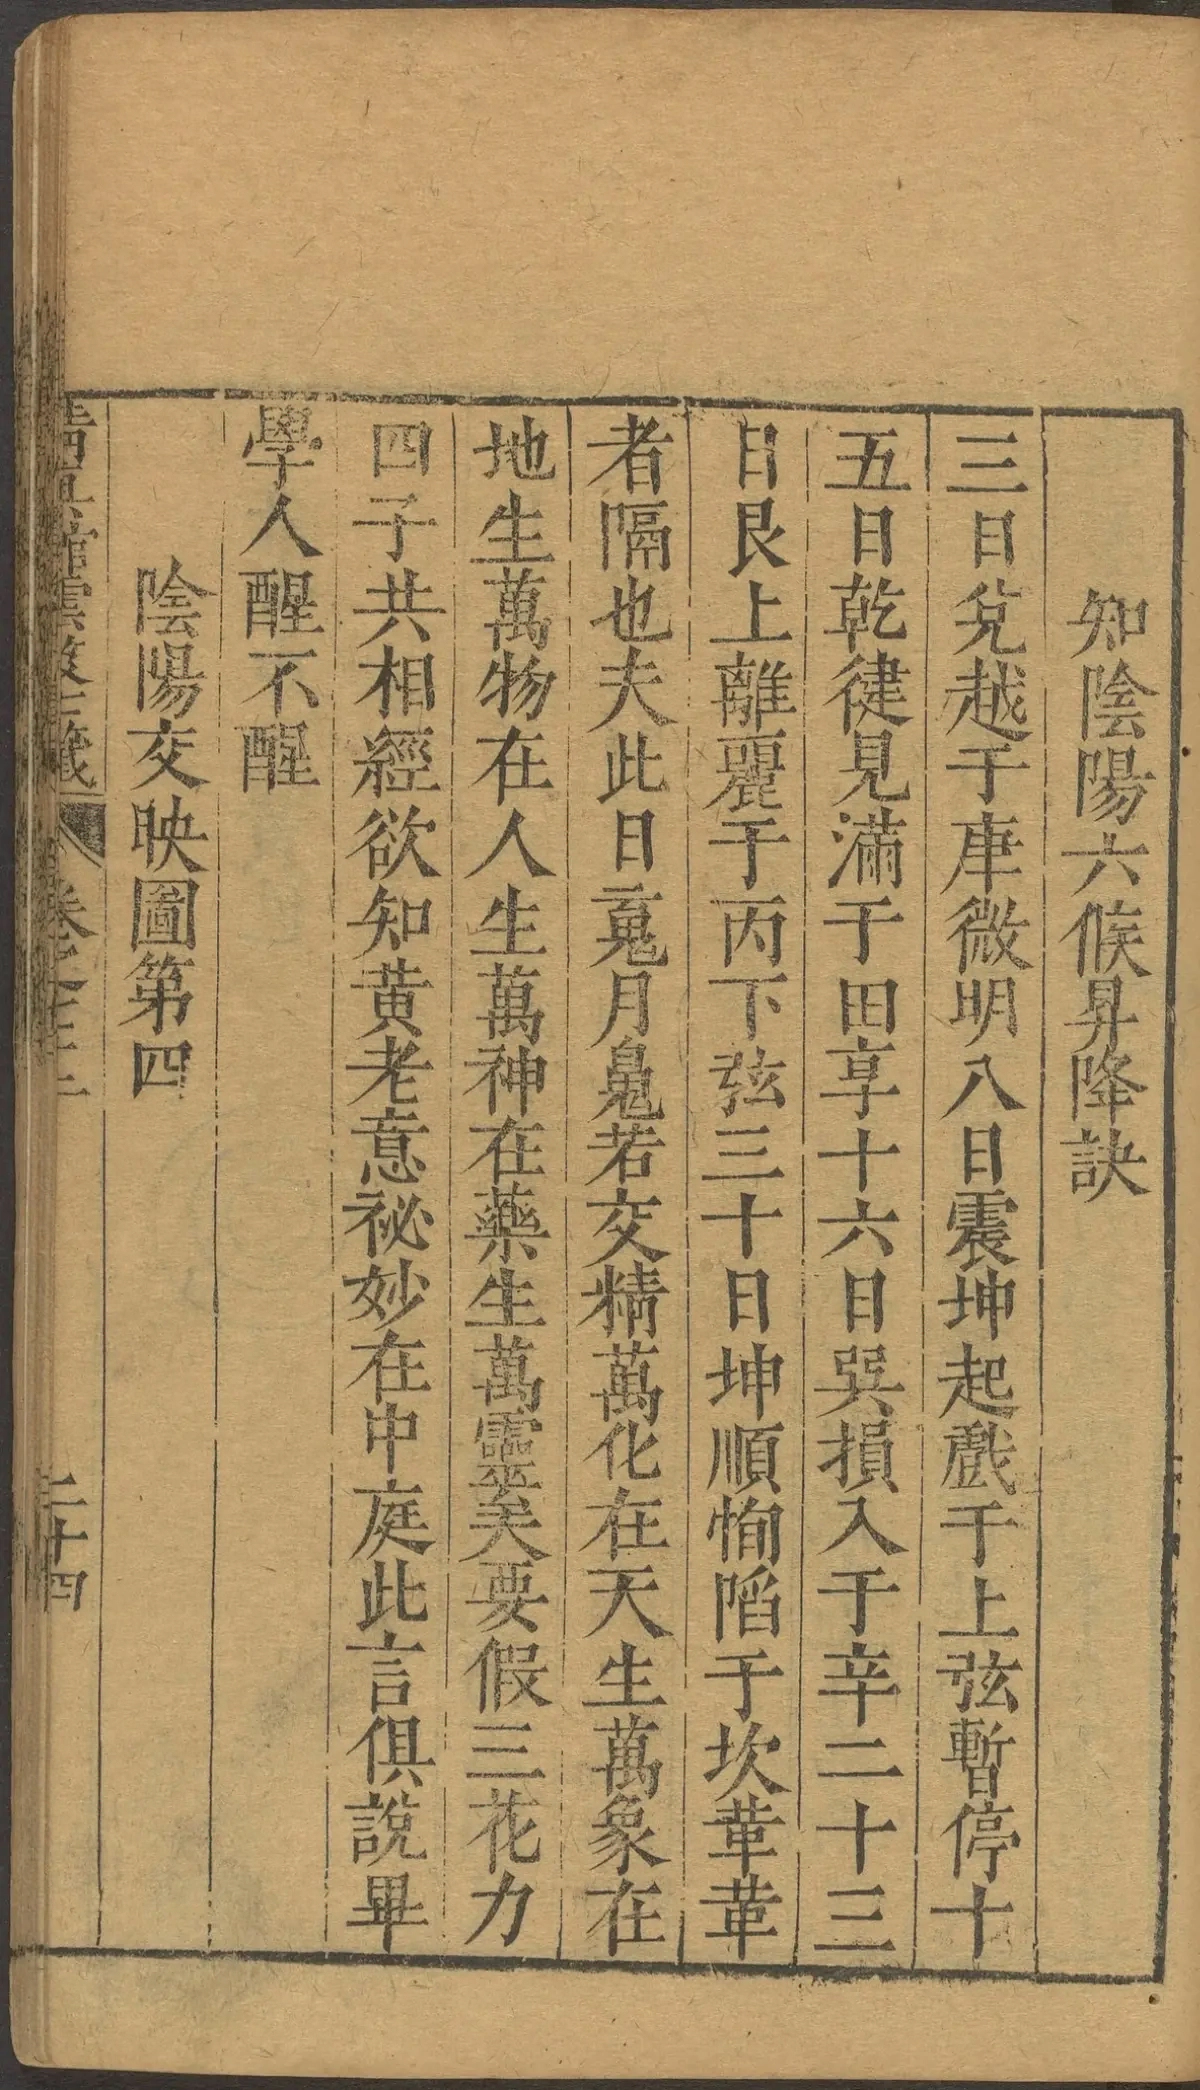 知陰陽六候昇降訣
三日兌越于庚微明八日震坤起戲于上弦暫停十
五日乾健見滿于田享十六日巽損入于辛二十三
日艮上離麗于丙下弦三十日坤順恂陷于坎葷葷
者隔也夫此日䰟月鬼若交精萬化在天生萬象在
地生萬物在人生萬神在藥生萬靈矣要假三花力
四子共相經欲知黃老意祕妙在中庭此言俱說畢
學人醒不醒
陰陽交映圖第四
卷之三十二
二十四